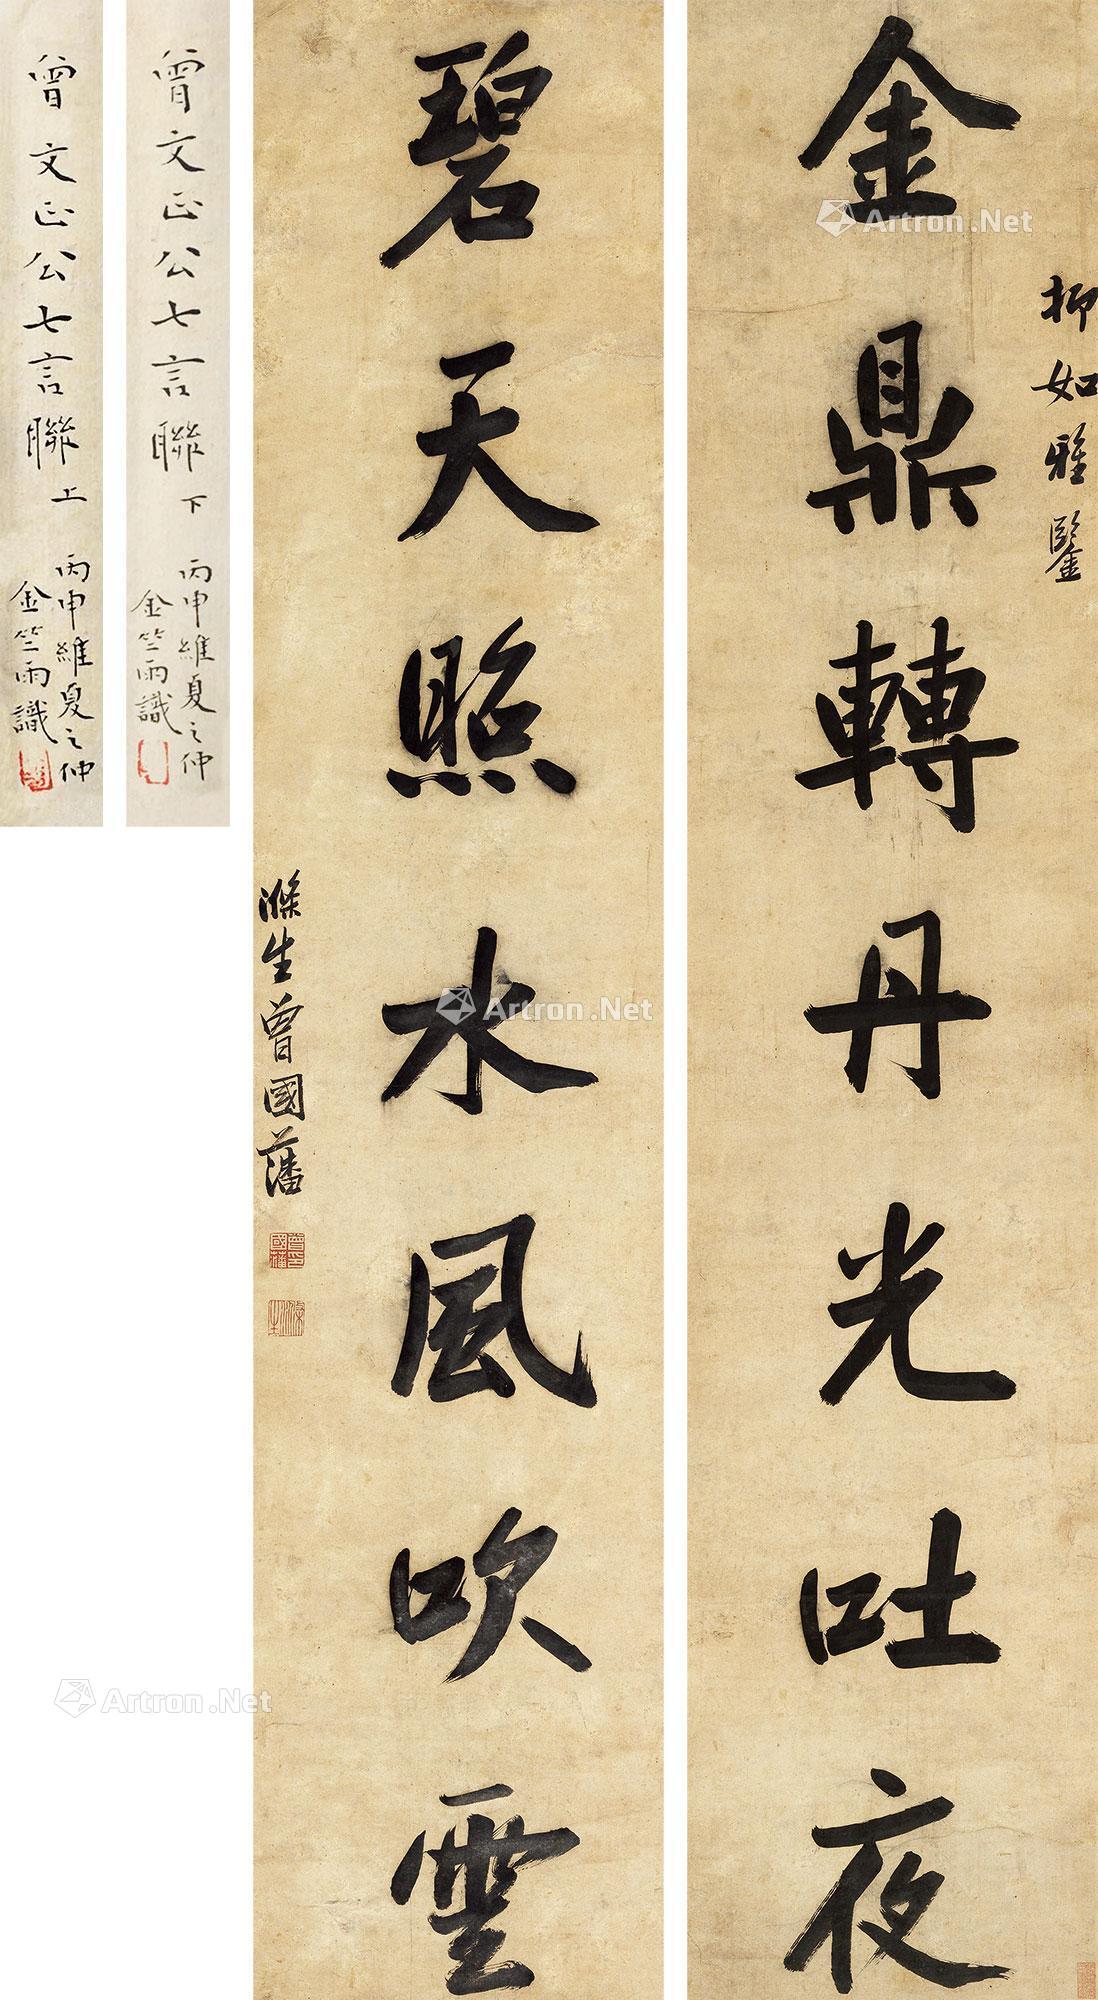 金鼎轉丹光吐夜
柳如雅鑒
碧天照水風吹雲
滌生曾國藩
曾國藩印
滌生
曾文正公七言聯下
丙申維夏之仲
金竺雨識
曾文正公七言聯上
丙申維夏之仲
金竺雨識
Artron.Net
Artron.Net
Artron.Net